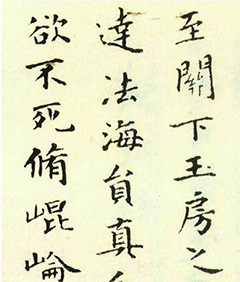 至關下玉房之
達法海貟真
欲不死脩崐崘